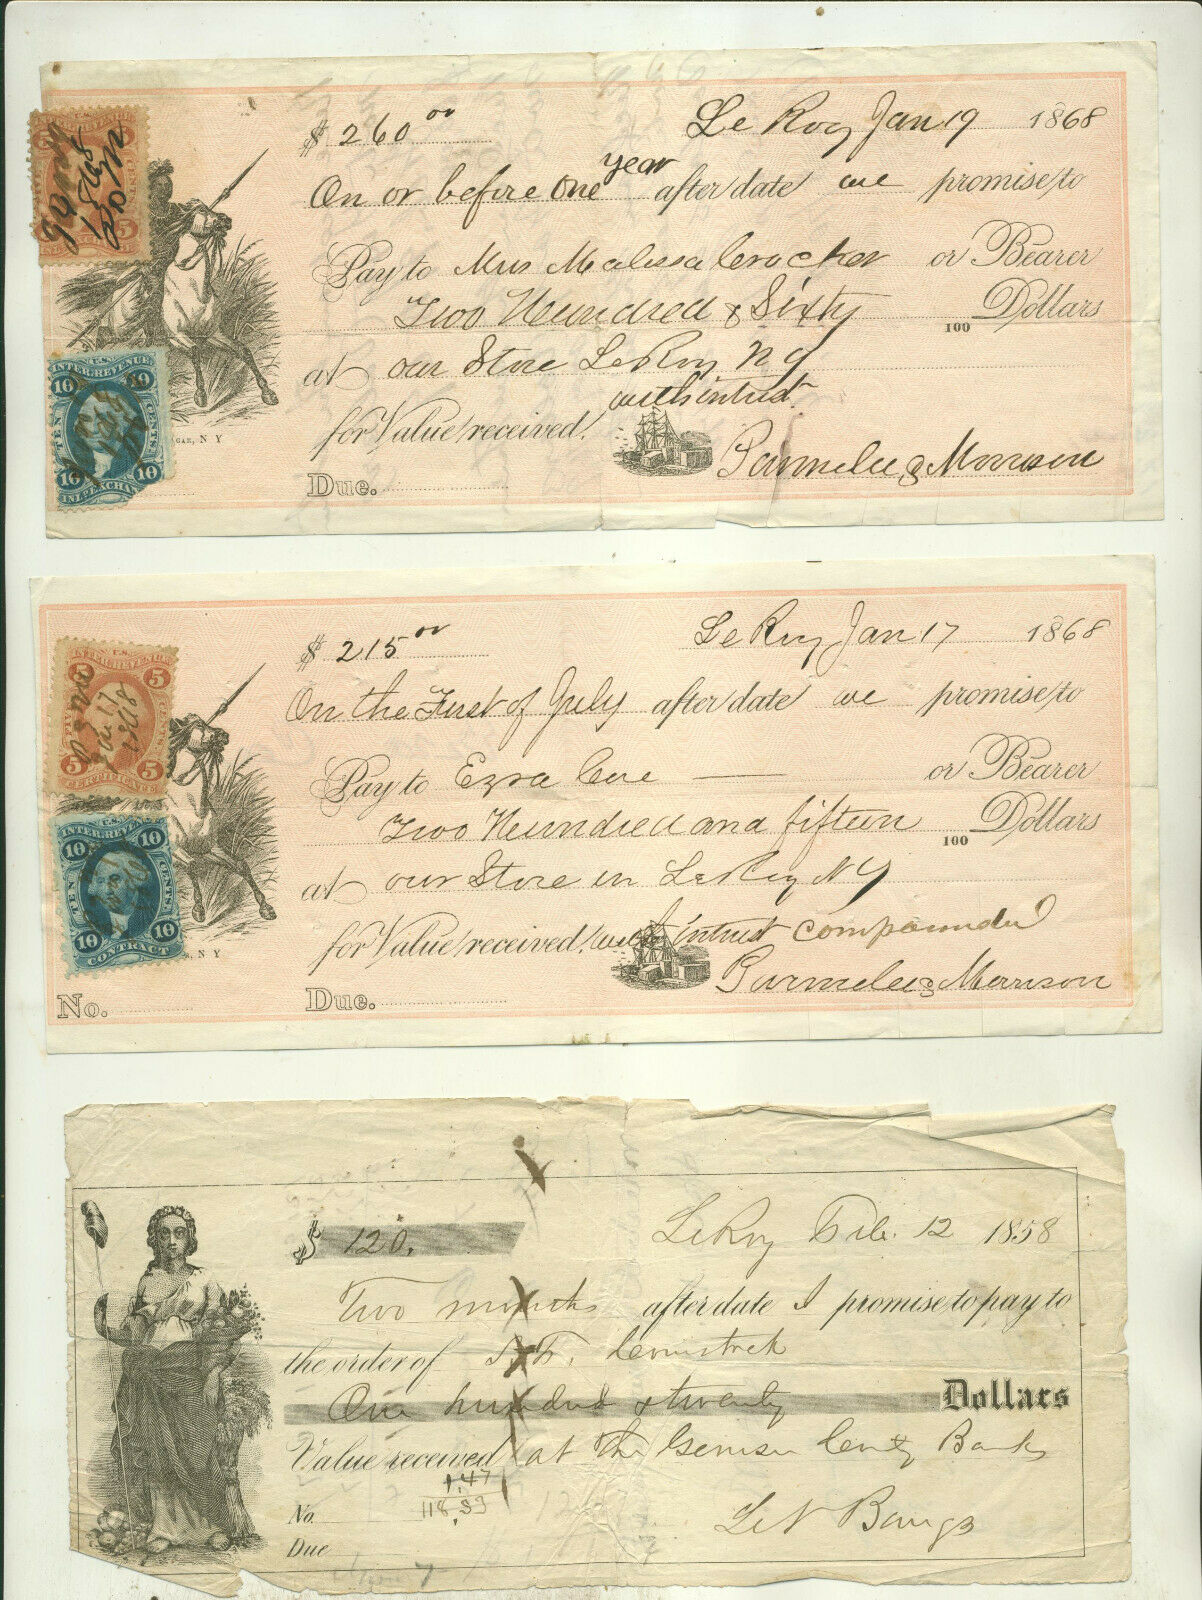 $ 260 00 Le Roy Jan 19 1868
year
On or before one after date we promise to
Pay to Mrs Malissa Crocker or Bearer
Two Hundred & Sixty 100 Dollars
at our Store LeRoy N Y
with intrest
for Value received.
Parmelee & Morrison
Due.
U.S. INTER. REVENUE
5 5
1868
U.S. INTER. REVENUE.
10 10
TEN CENTS
10 10
INL. EXCHANGE
GAR, N Y
$ 215 00 Le Roy Jan 17 1868
On the First of July after date we promise to
Pay to Ezra Coe or Bearer
Two Hundred and fifteen 100 Dollars
at our Store in Le Roy NY
for Value received with intrest compounded
Parmelee & Morrison
No. Due.
U.S. INTER. REVENUE
5 5
FIVE CENTS
Jan 17
1868
5 5
CERTIFICATE
U.S. INTER. REVENUE
10 10
TEN CENTS
10 10
CONTRACT
N Y
$ 120. LeRoy Feb. 12 1858
Two months after date I promise to pay to
the order of Comstock
One hundred & twenty Dollars
Value received at The Genesee County Bank
1.47
118.53
No.
Bangs
Due
June 7